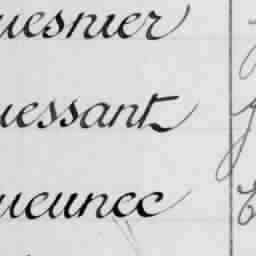 uesnier
uessant
ueunec